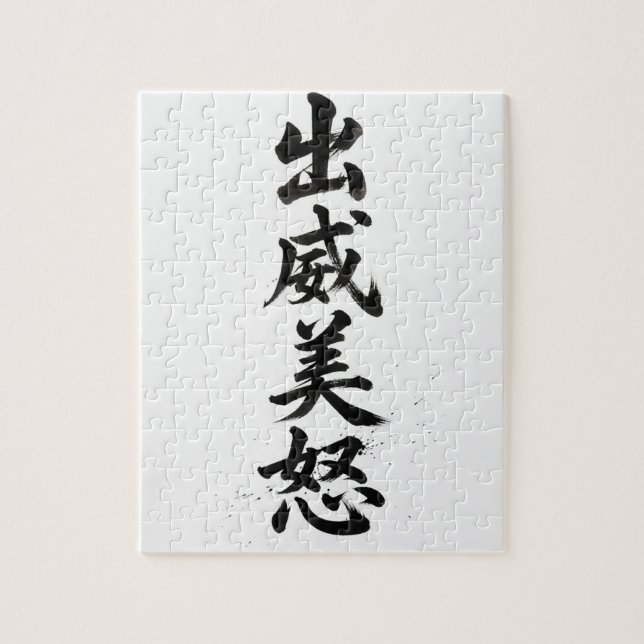 出威美怒